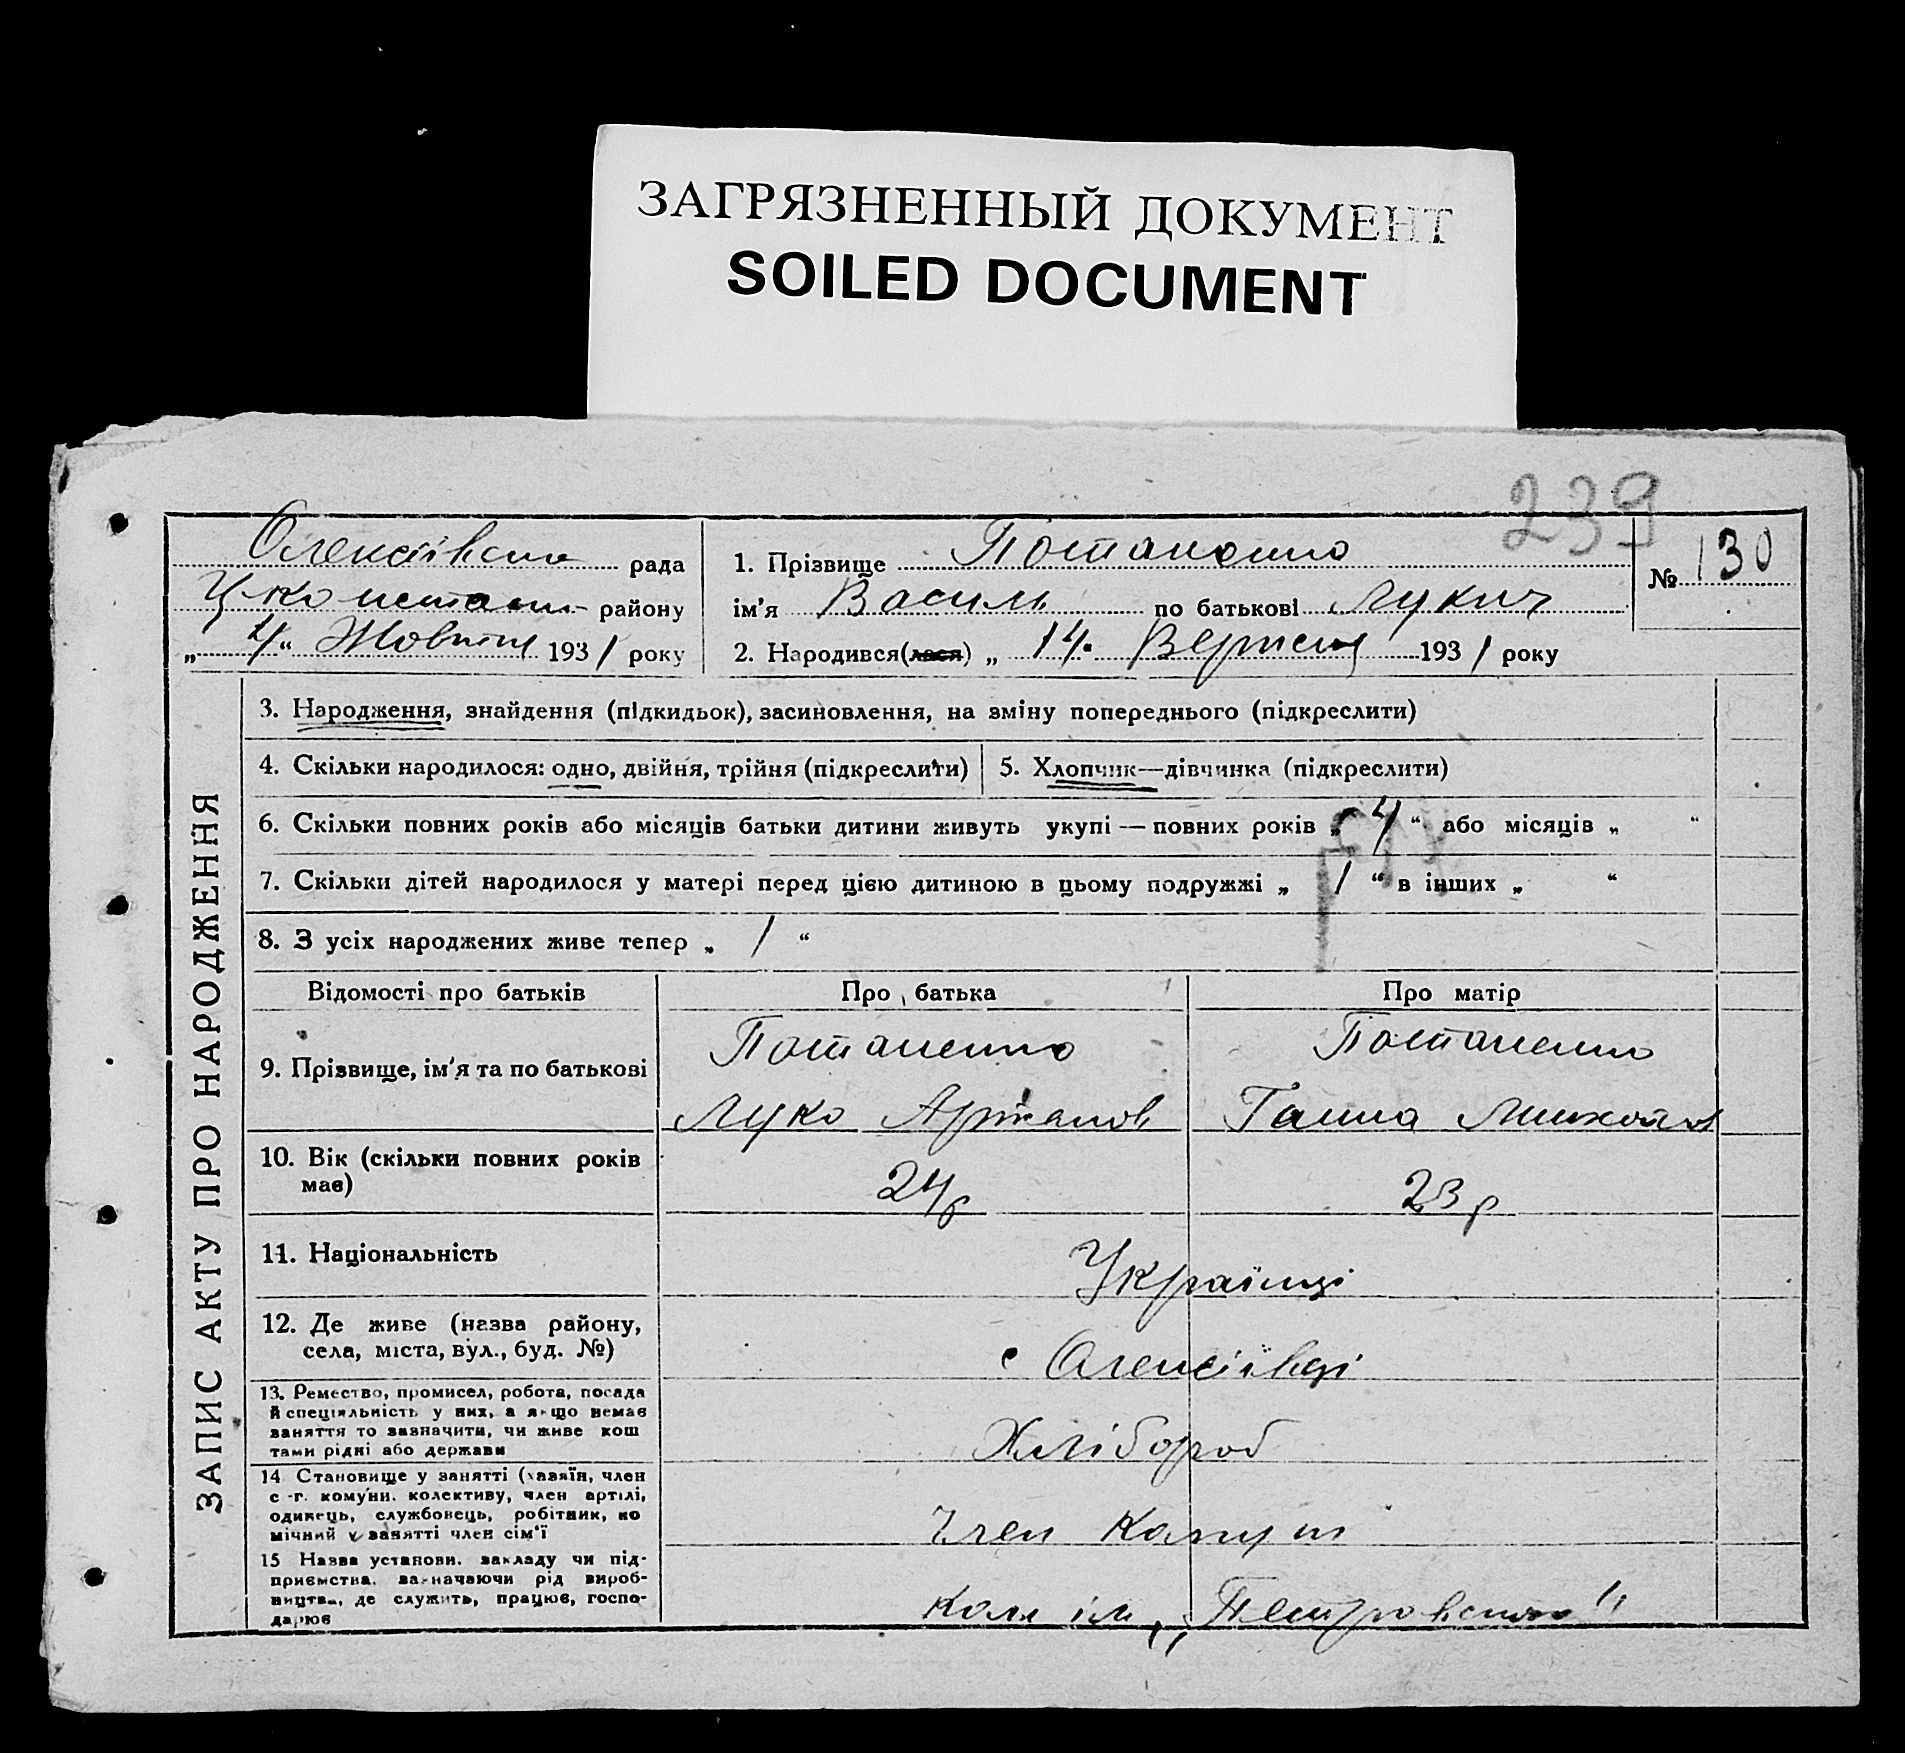 ЗАГРЯЗНЕННЫЙ ДОКУМЕНТ
SOILED DOCUMENT
239
Олексіївська рада
району
„ 4 “ Жовтня 1931 року
1. Прізвище Потапенко
ім'я Василь по батькові Лукич
2. Народився(лася) „ 14 “ Вересня 1931 року
№ 130
ЗАПИС АКТУ ПРО НАРОДЖЕННЯ
3. Народження, знайдення (підкидьок), засиновлення, на зміну попереднього (підкреслити)
4. Скільки народилося: одно, двійня, трійня (підкреслити)
5. Хлопчик—дівчинка (підкреслити)
6. Скільки повних років або місяців батьки дитини живуть укупі — повних років „ 4 “ або місяців „ “
7. Скільки дітей народилося у матері перед цією дитиною в цьому подружжі „ 1 “ в інших „ “
8. З усіх народжених живе тепер „ 1 “
Відомості про батьків
Про батька
Про матір
9. Прізвище, ім'я та по батькові
Потапенко
Лука
Потапенко
Ганна
10. Вік (скільки повних років
має)
24 р
23 р
11. Національність
Українці
12. Де живе (назва району,
села, міста, вул., буд. №)
с Олексіївці
13. Ремество, промисел, робота, посада
й спеціяльність у них, а якщо немає
заняття то зазначити, чи живе кош
тами рідні або держави
Хлібороб
14 Становище у занятті (хазяїн, член
с-г. комуни. колективу, член артілі,
одинець, службовець, робітник, по
мічний у занятті член сім'ї
Член
15 Назва установи. закладу чи під-
приємства. зазначаючи рід вироб-
ництва, де служить, працює, госпо-
дарює
Кол ім „Петровського“